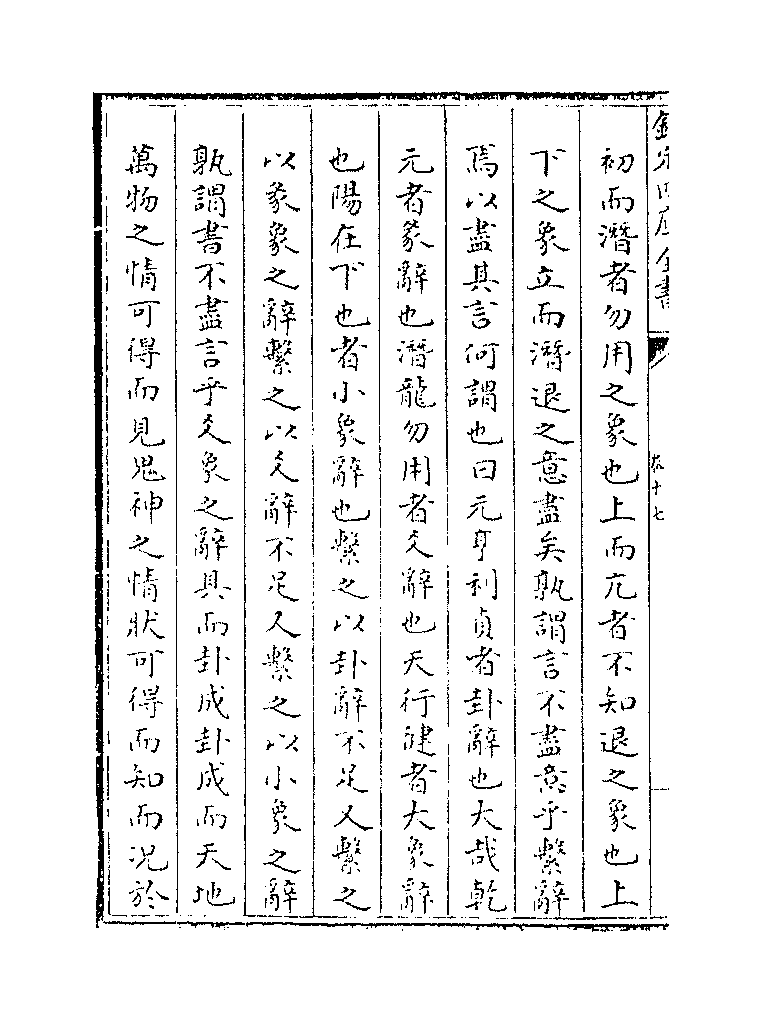 欽定四庫全書
卷十七
初而潛者勿用之象也上而亢者不知退之象也上
下之象立而潛退之意盡矣孰謂言不盡意乎繫辭
焉以盡其言何謂也曰元亨利貞者卦辭也大哉乾
元者彖辭也潛龍勿用者爻辭也天行健者大象辭
也陽在下也者小象辭也繫之以卦辭不足又繫之
以彖象之辭繫之以爻辭不足又繫之以小象之辭
孰謂書不盡言乎爻象之辭具而卦成卦成而天地
萬物之情可得而見鬼神之情狀可得而知而況於